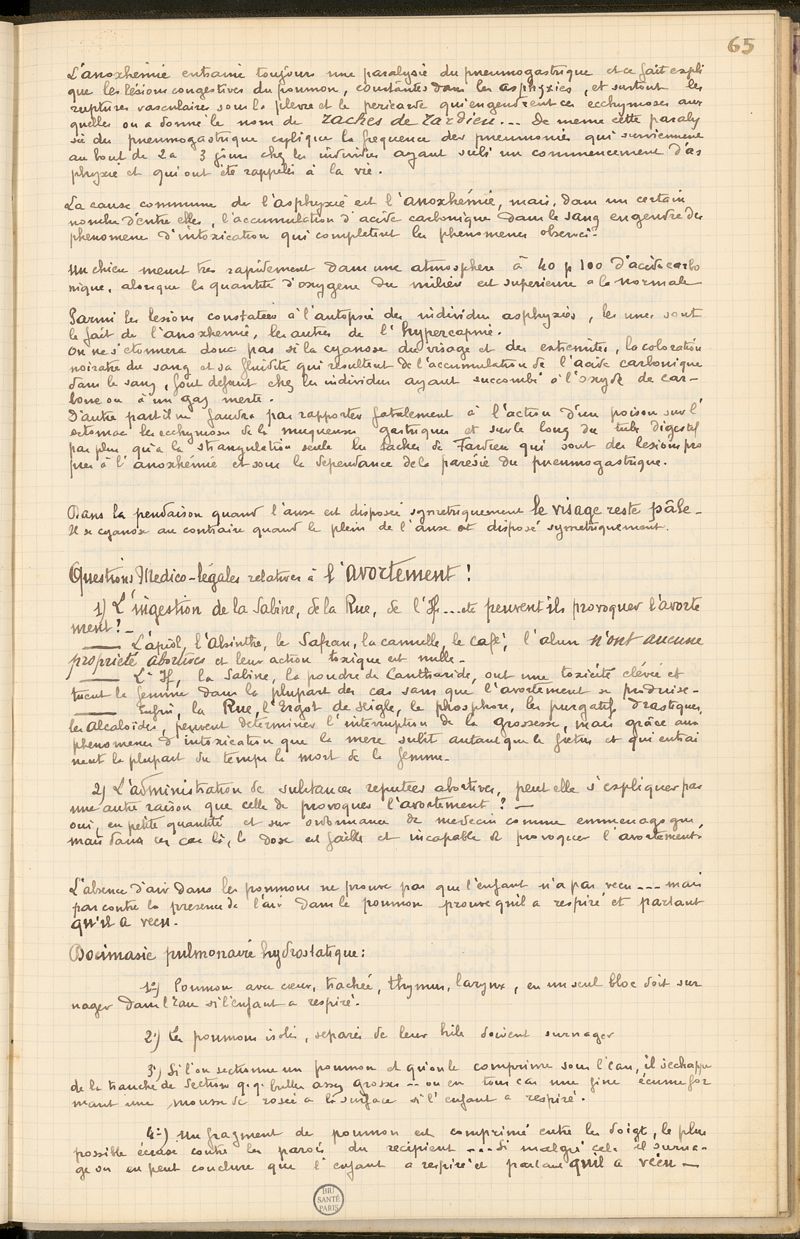 65
L'anoxhemie entraine toujours une paralysie du pneumogastrique et ce fait expli
que les lésions congestives du poumon, constantes dans les asphyxies, et surtout les
ruptures vasculaires sous la plevre et le pericarde qui engendrent ces ecchymoses aux
quelles on a donné le nom de Taches de Tardieu... De meme cette paraly
sie du pneumogastrique explique la frequence des pneumonies qui surviennent
au bout de 2 a 3 jours chez les individus ayant subi un commencement d'as
phyxie et qui ont été rappelés à la vie.
La cause commune de l'asphyxie est l'anoxhémie, mais, dans un certain
nombre d'entre elles, l'accumulation d'acide carbonique dans le sang engendre des
phenomene d'intoxication qui completent les phenomenes observés.
Un chien meurt tres rapidement dans une atmosphere à 40 p 100 d'acide carbo
nique, alorsque la quantité d'oxygene du milieu est superieure a la normale
Parmi les lesions constatées à l'autopsie des individus asphyxiés, les unes sont
le fait de l'anoxhemie, les autres de l'hypercapnie.
On ne s'etonnera donc pas si la cyanose du visage et des extremités, la coloration
noiratre du sang et sa fluidité qui resultent de l'accumulation de l'acide carbonique
dans le sang, font defaut chez les individus ayant succombé à l'oxyde de car-
bone ou à un gaz inerte.
D'autre part il ne faudra pas rapporter fatalement à l'action d'un poison sur l'
estomac les ecchymoses de la muqueuse gastrique et sur le long du tube digestif
pas plus qu'a la strangulation seule les taches de Tardieu qui sont des lesions pro
pres à l'anoxhémie et sous la dependance de la parésie du pneumogastrique.
Dans la pendaison quand l'anse est disposée symetriquement le visage reste pâle_
Il se cyanose au contraire quand le plein de l'anse est disposé symetriquement.
Questions Medico-légales relatives à l'avortement!
1) L'ingestion de la Sabine, de la Rue, de l'If....etc peuvent ils provoquer l'avorte
ment?_
___ L'apiol, l'Absinthe, le Safran, la cannelle, le café, l'alun n'ont aucune
propriété abortives et leur action toxique est nulle_
___ L'If, la Sabine, la poudre de Cantharide, ont une toxicité élevée et
tuent la femme dans la plupart des cas sans que l'avortement se produise_
___ Enfin, la Rue, l'Ergot de seigle, le phosphore, les purgatifs drastiques,
les Alcaloïdes, peuvent determiner l'interruption de la grossesse, mais grâce aux
phenomenes d'intoxication que la mere subit autant que le foetus et qui entrai
nent la plupart du temps la mort de la femme_
2) L'administration de substances reputées abortives, peut elle s'expliquer par
une autre raison que celle de provoquer l'avortement?_
oui, en petite quantité et sur ordonnance de medecin comme emmenagogue,
mais dans ces cas là, la dose est faible et incapable de provoquer l'avortement.
L'absence d'air dans les poumons ne prouve pas que l'enfant n'a pas vecu ___ mais
par contre la presence de l'air dans le poumon prouve qu'il a respiré et partant
qu'il a vecu_
Docimasie pulmonaire hydrostatique:
1°) Poumon avec coeur, trachée, thymus, larynx, en un seul bloc doit sur
nager dans l'eau si l'enfant a respiré.
2°) Les poumons isolés, separés de leur hile doivent surnager
3°) Si l'on sectionne un poumon et qu'on le comprime sous l'eau, il s'echappe
de la tranche de section q.q. bulles assez grosses... ou en tous cas une fine écume for
mant une mousse de rosée a la surface si l'enfant a respiré.
4°) Un fragment de poumon est comprimé entre les doigts, le plus
possible écrasé contre les parois du recipient ... Si malgré cela il surna-
ge on en peut conclure que l'enfant a respiré et partant qu'il a vécu_
BIU
SANTÉ
PARIS